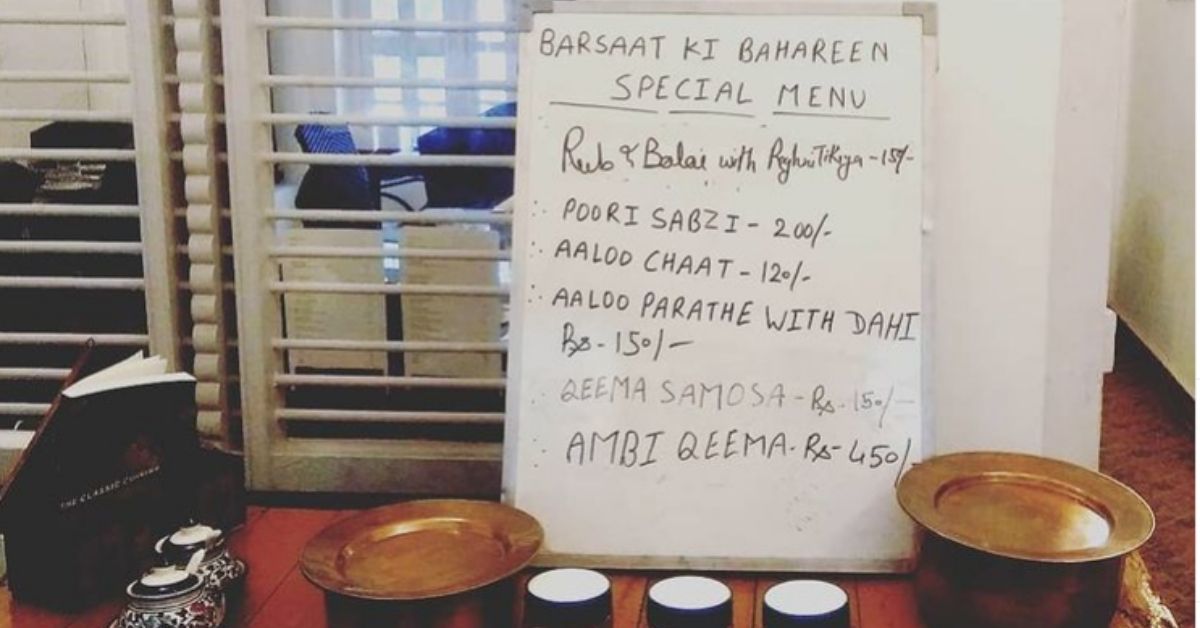 BARSAAT KI BAHAREEN
SPECIAL MENU
Rub & Balai with Roghni Tikiya - 150/-
POORI SABZI - 200/-
AALOO CHAAT - 120/-
AALOO PARATHE WITH DAHI
Rs - 150/-
QEEMA SAMOSA - Rs - 150/-
AMBI QEEMA - Rs - 450/-
THE CLASSIC CUISINE